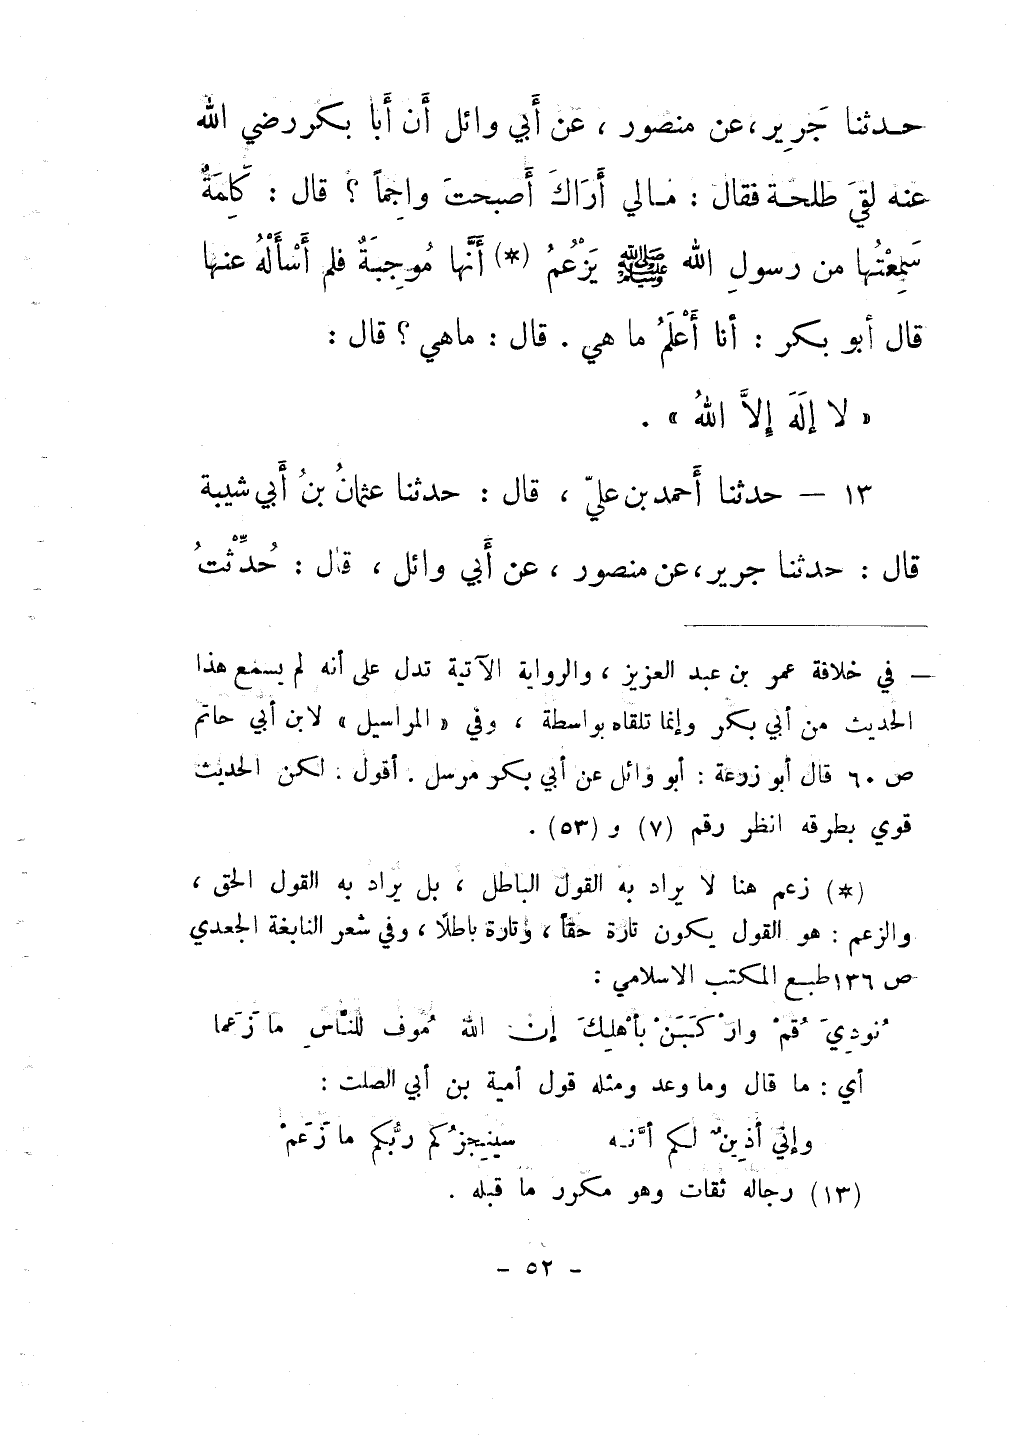 حدثنا جَرِير، عن منصور ، عَن أَبي وائل أَن أَبا بكر رضي الله
عنه لقيَ طلحة فقال : مالي أَرَاكَ أَصبحتَ واجِماً ؟ قال : كَلِمَةٌ
سَمِعْتُها من رسولِ الله ﷺ يَزْعُمُ (*) أَنَّها مُوجِبَةٌ فلم أَسْأَلْهُ عنها
قال أبو بكر : أنا أَعْلَمُ ما هي . قال : ماهي ؟ قال :
« لا إِلَهَ إِلاَّ اللهُ » .
١٣ — حدثنا أَحمد بن عليّ ، قال : حدثنا عثمانُ بنُ أَبي شيبة
قال : حدثنا جرير، عن منصور ، عن أَبي وائل ، قال : حُدِّثْتُ
— في خلافة عمر بن عبد العزيز ، والرواية الآتية تدل على أنه لم يسمع هذا
الحديث من أبي بكر وإنما تلقاه بواسطة ، وفي « المراسيل » لابن أبي حاتم
ص ٦٠ قال أبو زرعة : أبو وائل عن أبي بكر مرسل . أقول . لكن الحديث
قوي بطرقه انظر رقم (٧) و (٥٣) .
(*) زعم هنا لا يراد به القول الباطل ، بل يراد به القول الحق ،
والزعم : هو القول يكون تارة حقاً ، وتارة باطلًا ، وفي شعر النابغة الجعدي
ص ١٣٦ طبع المكتب الاسلامي :
نُودِيَ قُمْ وارْكَبَنْ بأَهْلِكَ إن الله مُوف للنَّاسِ ما زَعَما
أي : ما قال وما وعد ومثله قول أمية بن أبي الصلت :
وإنّي أَذِينٌ لكم أنَّه سينجِزُكم ربُّكم ما زَعَمْ
(١٣) رجاله ثقات وهو مكرر ما قبله .
- ٥٢ -